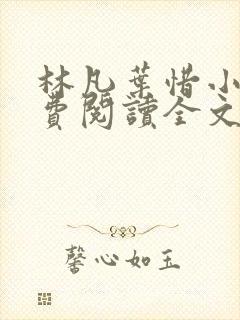 林凡葉惜小
費閱讀全文
馨心如玉